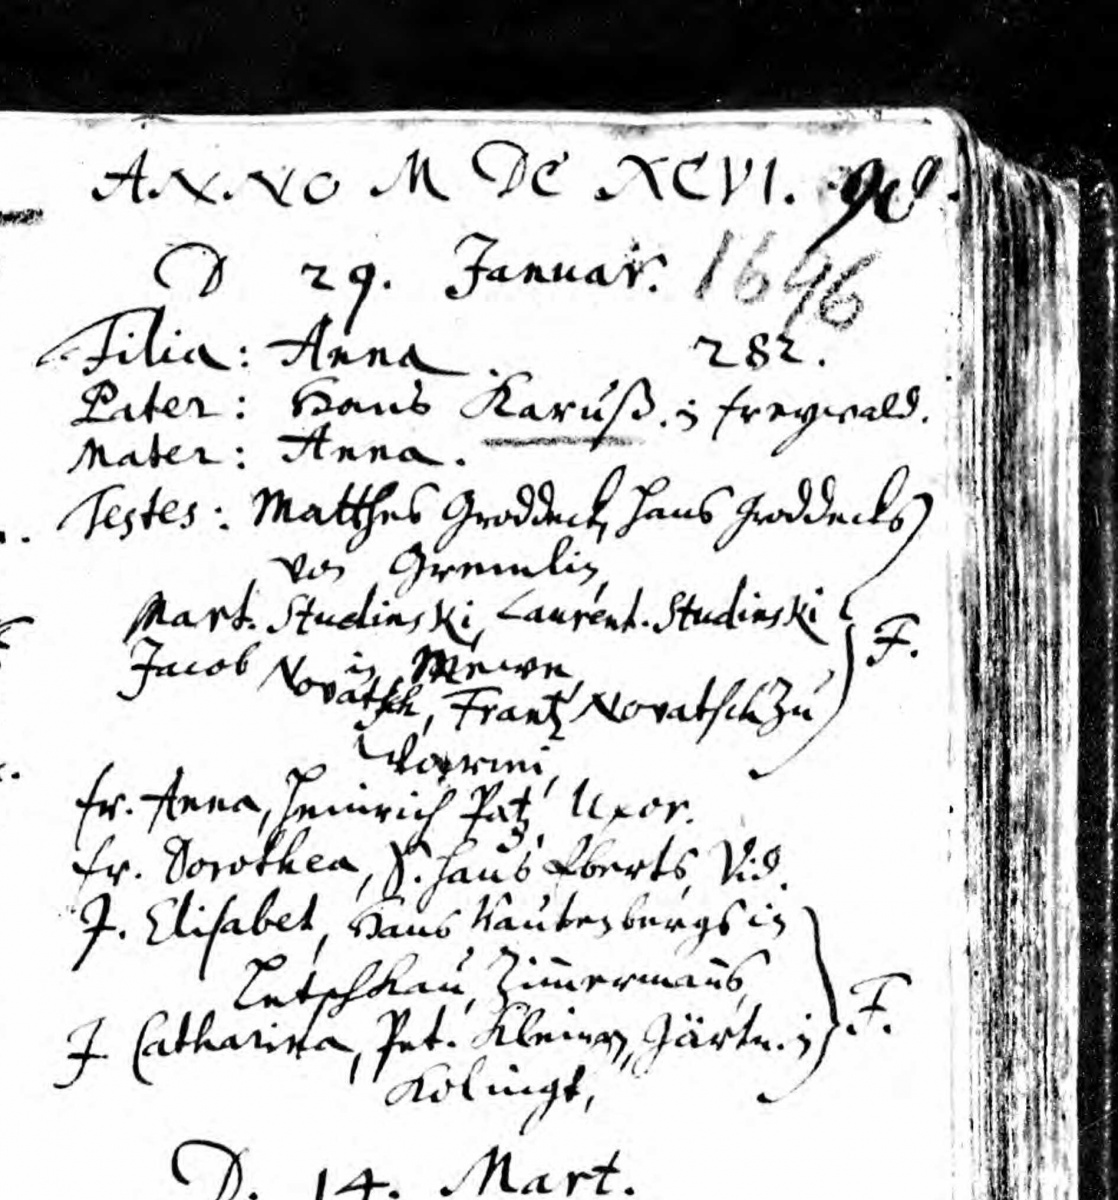 ANNO M DC XCVI. 90.
D 29. Januar. 1696
Filia: Anna. 282.
Pater: Hans Karuß. in Freywald.
Mater: Anna.
Testes: Matthes Groddeck, Hans Groddecks
von Gremlin,
Mart. Studinski, Laurent. Studinski
in Mewe,
Jacob Novatsch, Frantz Novatsch zu
fr. Anna, Heinrich Patz, Uxor.
fr. Dorothea, S. Hans Eberts, Vid.
J. Elisabet, Hans Rautenbergs in
Letschkau, Zim̄ermañs,
J. Catharina, Pet. Kleinen, Gärtn. in
Kolingt,
F.
F.
D. 14. Mart.